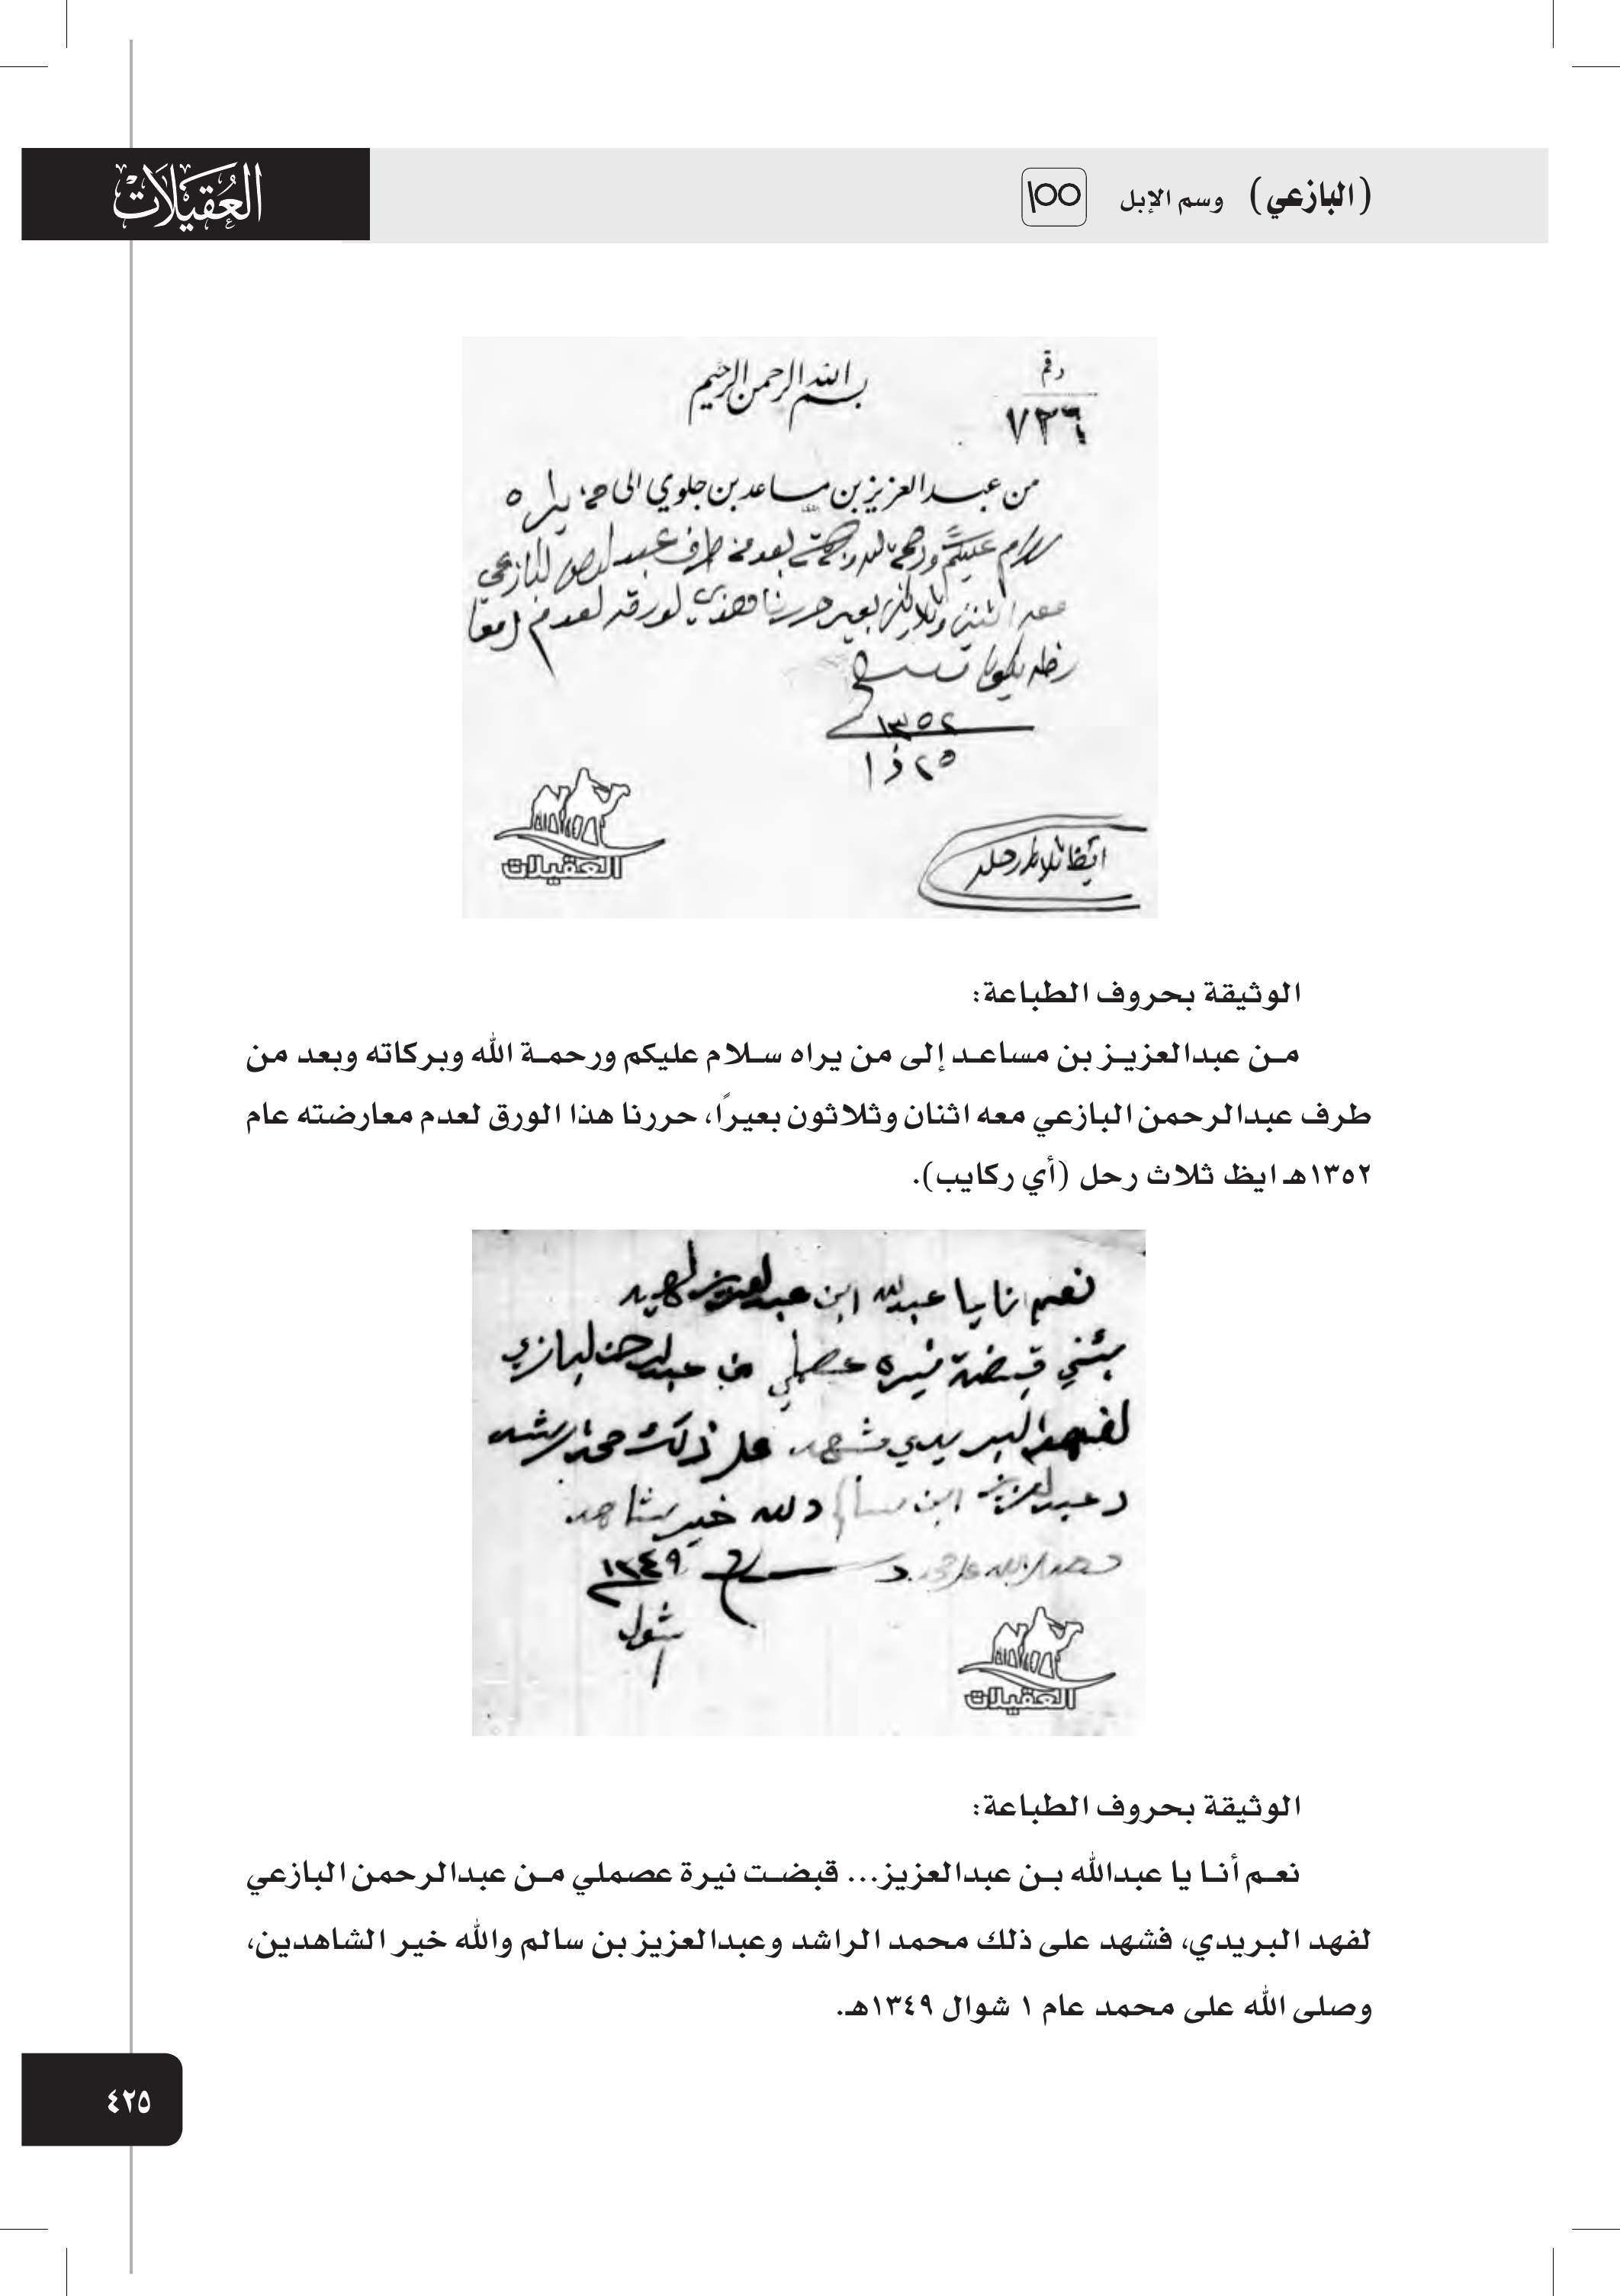 العقيلات
(البازعي) وسم الإبل
رقم
٧٣٦
بسم الله الرحمن الرحيم
من عبدالعزيز بن مساعد بن جلوي الى من يراه
سلام عليكم ورحمة الله وبركاته بعد من طرف عبدالرحمن البازعي
معه اثنين وثلاثين بعير حررنا هذي الورقه لعدم
يكون
١٣٥٢
٢٥ ذ ١
ايظا ثلاث رحله
العقيلات
الوثيقة بحروف الطباعة:
من عبدالعزيز بن مساعد إلى من يراه سلام عليكم ورحمة الله وبركاته وبعد من
طرف عبدالرحمن البازعي معه اثنان وثلاثون بعيرًا، حررنا هذا الورق لعدم معارضته عام
١٣٥٢هـ ايظ ثلاث رحل (أي ركايب).
نعم انا يا عبدالله ابن عبدالعزيز
قبضة نيره عصملي من عبدالرحمن البازعي
لفهد البريدي شهد على ذلك محمد الرشد
وعبدالعزيز ابن سالم والله خير شاهد
وصلى الله على محمد
١٣٤٩
شوال
١
العقيلات
الوثيقة بحروف الطباعة:
نعم أنا يا عبدالله بن عبدالعزيز... قبضت نيرة عصملي من عبدالرحمن البازعي
لفهد البريدي، فشهد على ذلك محمد الراشد وعبدالعزيز بن سالم والله خير الشاهدين،
وصلى الله على محمد عام ١ شوال ١٣٤٩هـ.
٤٢٥